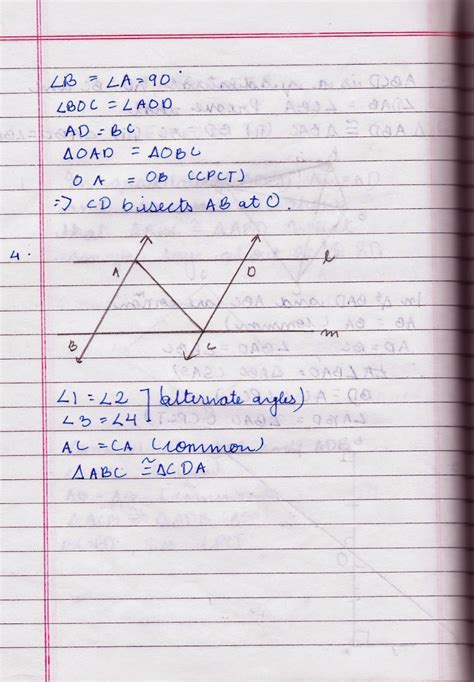 ∠B = ∠A = 90°
∠BOC = ∠AOD
AD = BC
ΔOAD = ΔOBC
OA = OB (CPCT)
=> CD bisects AB at O.
4.
A D l
B C m
∠1 = ∠2 ] (alternate angles)
∠3 = ∠4
AC = CA (common)
ΔABC ≅ ΔCDA